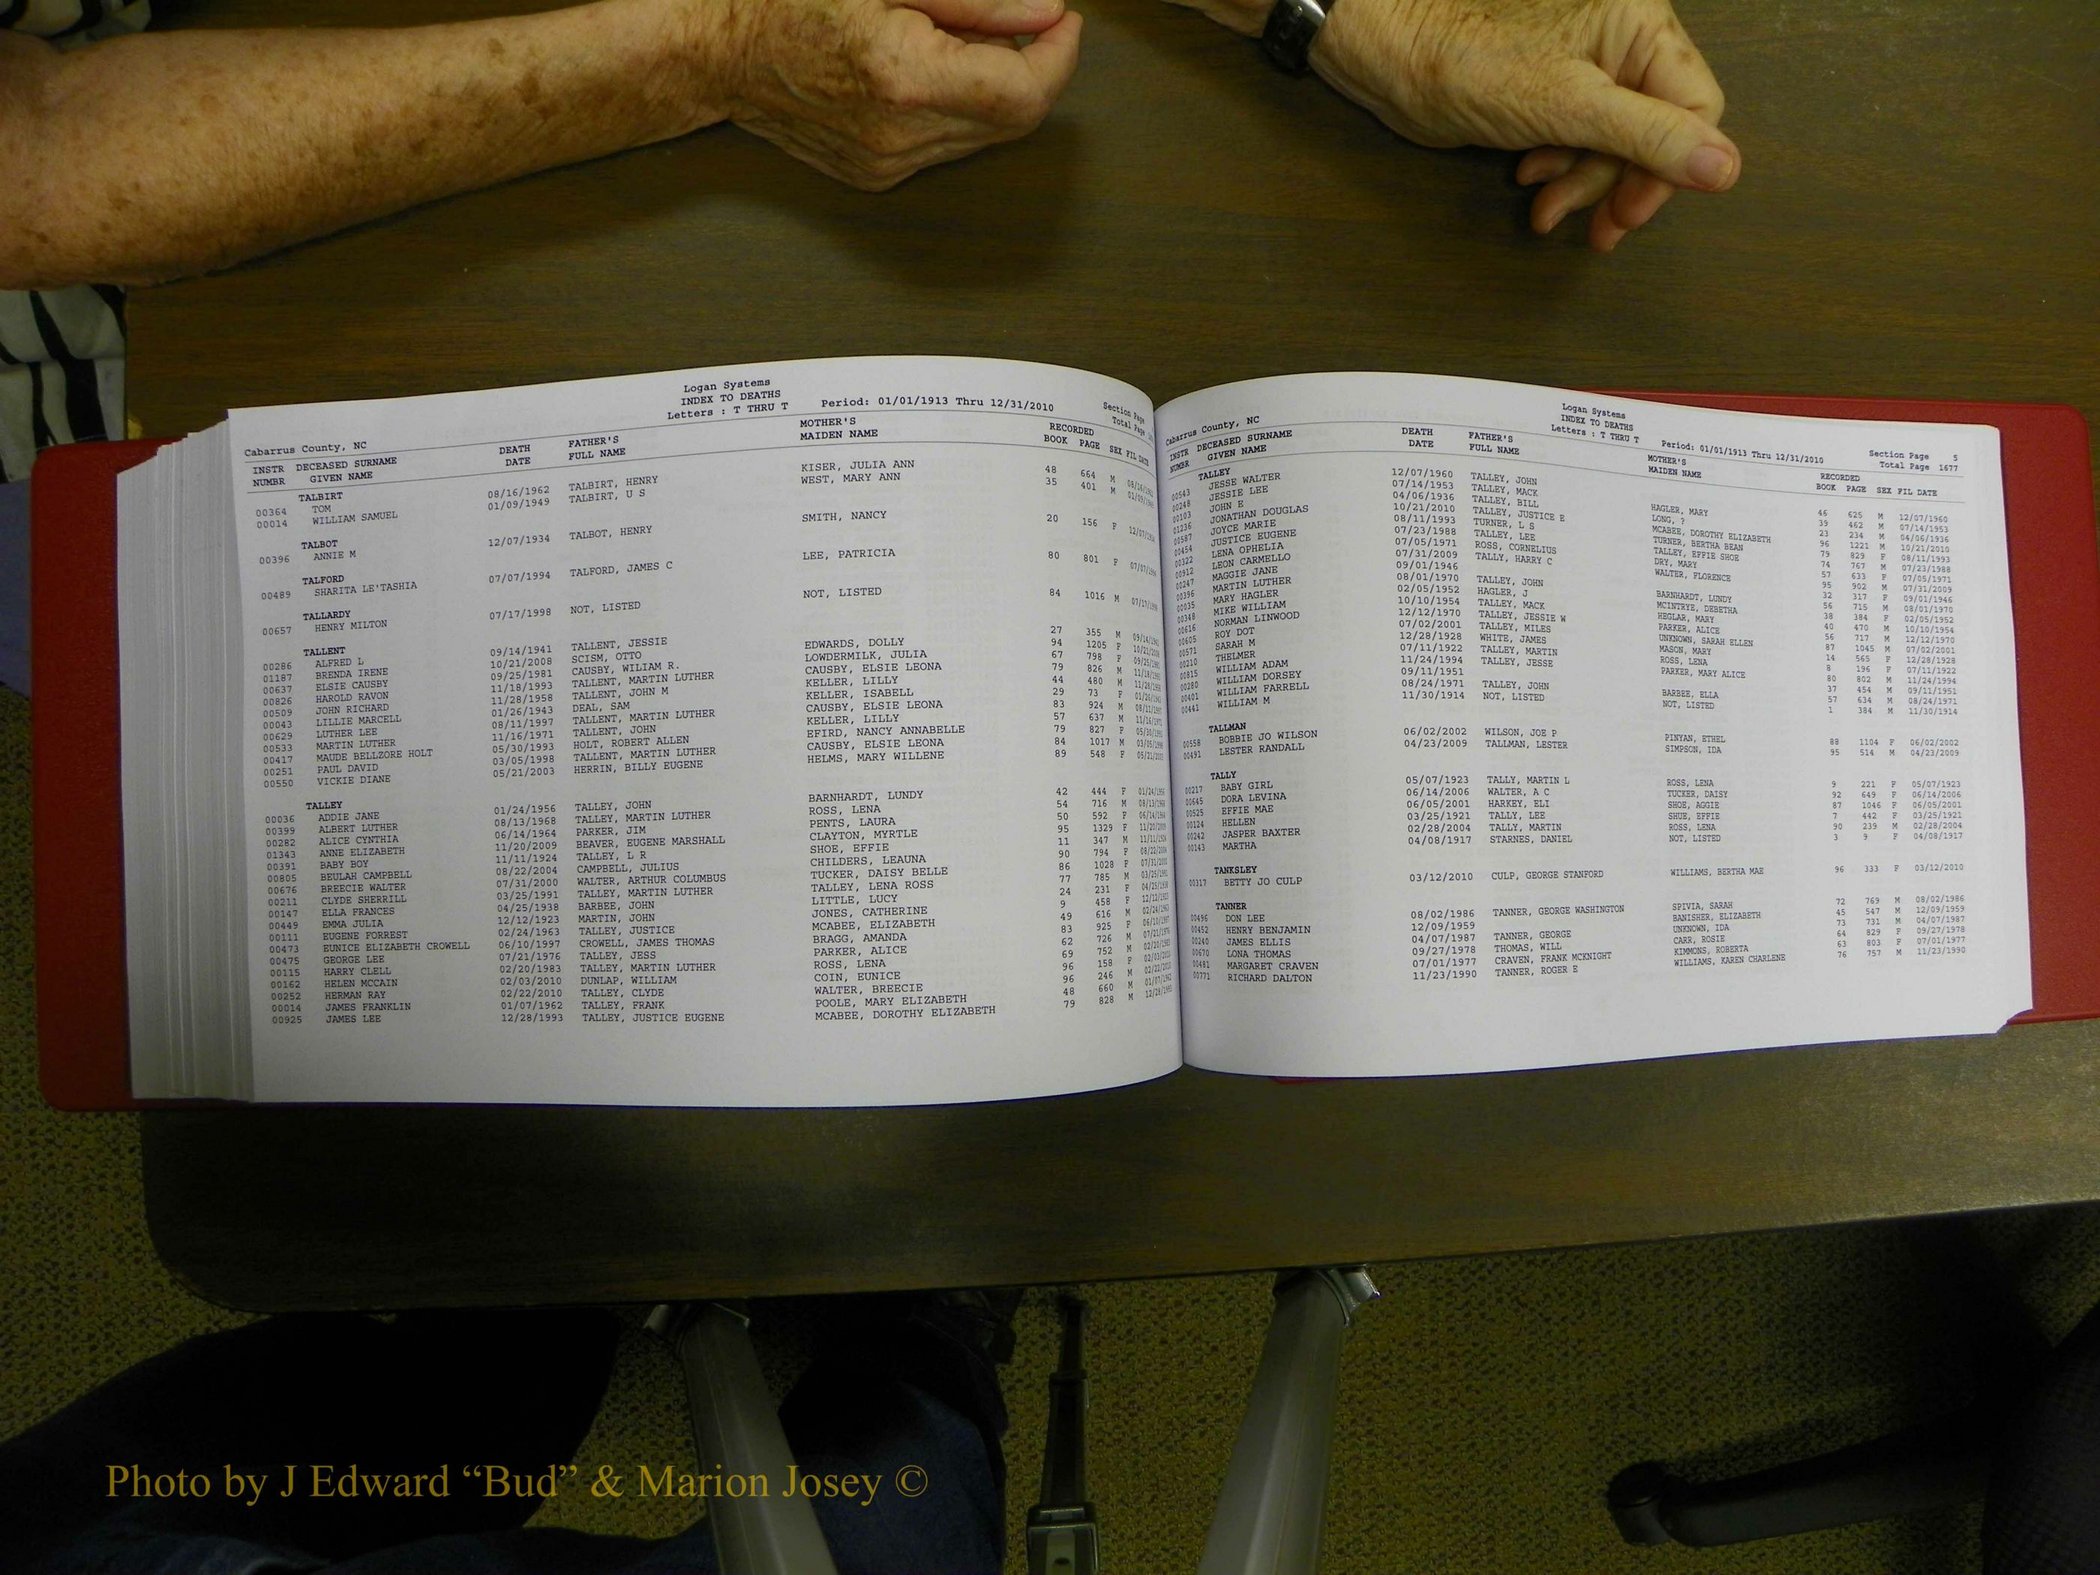 Logan Systems
INDEX TO DEATHS
Letters : T THRU T Period: 01/01/1913 Thru 12/31/2010 Section Page
Cabarrus County, NC Total Page
INSTR DECEASED SURNAME DEATH FATHER'S MOTHER'S RECORDED
NUMBR GIVEN NAME DATE FULL NAME MAIDEN NAME BOOK PAGE SEX FIL DATE
TALBIRT
00364 TOM 08/16/1962 TALBIRT, HENRY KISER, JULIA ANN 48 664 M
00014 WILLIAM SAMUEL 01/09/1949 TALBIRT, U S WEST, MARY ANN 35 401 M
TALBOT
00396 ANNIE M 12/07/1934 TALBOT, HENRY SMITH, NANCY 20 156 F 12/07/1934
TALFORD
00489 SHARITA LE'TASHIA 07/07/1994 TALFORD, JAMES C LEE, PATRICIA 80 801 F 07/07/1994
TALLARDY
00657 HENRY MILTON 07/17/1998 NOT, LISTED NOT, LISTED 84 1016 M 07/17/1998
TALLENT
00286 ALFRED L 09/14/1941 TALLENT, JESSIE EDWARDS, DOLLY 27 355 M 09/14/1941
01187 BRENDA IRENE 10/21/2008 SCISM, OTTO LOWDERMILK, JULIA 94 1205 F 10/21/2008
00637 ELSIE CAUSBY 09/25/1981 CAUSBY, WILIAM R. CAUSBY, ELSIE LEONA 67 798 F 09/25/1981
00826 HAROLD RAVON 11/18/1993 TALLENT, MARTIN LUTHER KELLER, LILLY 79 826 M 11/18/1993
00509 JOHN RICHARD 11/28/1958 TALLENT, JOHN M KELLER, ISABELL 44 480 M 11/28/1958
00043 LILLIE MARCELL 01/26/1943 DEAL, SAM CAUSBY, ELSIE LEONA 29 73 F 01/26/1943
00629 LUTHER LEE 08/11/1997 TALLENT, MARTIN LUTHER KELLER, LILLY 83 924 M 08/11/1997
00533 MARTIN LUTHER 11/16/1971 TALLENT, JOHN EFIRD, NANCY ANNABELLE 57 637 M 11/16/1971
00417 MAUDE BELLZORE HOLT 05/30/1993 HOLT, ROBERT ALLEN CAUSBY, ELSIE LEONA 79 827 F 05/30/1993
00251 PAUL DAVID 03/05/1998 TALLENT, MARTIN LUTHER HELMS, MARY WILLENE 84 1017 M 03/05/1998
00550 VICKIE DIANE 05/21/2003 HERRIN, BILLY EUGENE 89 548 F 05/21/2003
TALLEY
00036 ADDIE JANE 01/24/1956 TALLEY, JOHN BARNHARDT, LUNDY 42 444 F 01/24/1956
00399 ALBERT LUTHER 08/13/1968 TALLEY, MARTIN LUTHER ROSS, LENA 54 716 M 08/13/1968
00282 ALICE CYNTHIA 06/14/1964 PARKER, JIM PENTS, LAURA 50 592 F 06/14/1964
01343 ANNE ELIZABETH 11/20/2009 BEAVER, EUGENE MARSHALL CLAYTON, MYRTLE 95 1329 F 11/20/2009
00391 BABY BOY 11/11/1924 TALLEY, L R SHOE, EFFIE 11 347 M 11/11/1924
00805 BEULAH CAMPBELL 08/22/2004 CAMPBELL, JULIUS CHILDERS, LEAUNA 90 794 F 08/22/2004
00676 BREECIE WALTER 07/31/2000 WALTER, ARTHUR COLUMBUS TUCKER, DAISY BELLE 86 1028 F 07/31/2000
00211 CLYDE SHERRILL 03/25/1991 TALLEY, MARTIN LUTHER TALLEY, LENA ROSS 77 785 M 03/25/1991
00147 ELLA FRANCES 04/25/1938 BARBEE, JOHN LITTLE, LUCY 24 231 F 04/25/1938
00449 EMMA JULIA 12/12/1923 MARTIN, JOHN JONES, CATHERINE 9 458 F 12/12/1923
00111 EUGENE FORREST 02/24/1963 TALLEY, JUSTICE MCABEE, ELIZABETH 49 616 M 02/24/1963
00473 EUNICE ELIZABETH CROWELL 06/10/1997 CROWELL, JAMES THOMAS BRAGG, AMANDA 83 925 F 06/10/1997
00475 GEORGE LEE 07/21/1976 TALLEY, JESS PARKER, ALICE 62 726 M 07/21/1976
00115 HARRY CLELL 02/20/1983 TALLEY, MARTIN LUTHER ROSS, LENA 69 752 M 02/20/1983
00162 HELEN MCCAIN 02/03/2010 DUNLAP, WILLIAM COIN, EUNICE 96 158 F 02/03/2010
00252 HERMAN RAY 02/22/2010 TALLEY, CLYDE WALTER, BREECIE 96 246 M 02/22/2010
00014 JAMES FRANKLIN 01/07/1962 TALLEY, FRANK POOLE, MARY ELIZABETH 48 660 M 01/07/1962
00925 JAMES LEE 12/28/1993 TALLEY, JUSTICE EUGENE MCABEE, DOROTHY ELIZABETH 79 828 M 12/28/1993
Logan Systems
INDEX TO DEATHS
Letters : T THRU T Period: 01/01/1913 Thru 12/31/2010 Section Page 5
Cabarrus County, NC Total Page 1677
INSTR DECEASED SURNAME DEATH FATHER'S MOTHER'S RECORDED
NUMBR GIVEN NAME DATE FULL NAME MAIDEN NAME BOOK PAGE SEX FIL DATE
TALLEY
00543 JESSE WALTER 12/07/1960 TALLEY, JOHN HAGLER, MARY 46 625 M 12/07/1960
00248 JESSIE LEE 07/14/1953 TALLEY, MACK LONG, ? 39 462 M 07/14/1953
00103 JOHN E 04/06/1936 TALLEY, BILL 23 234 M 04/06/1936
01236 JONATHAN DOUGLAS 10/21/2010 TALLEY, JUSTICE E MCABEE, DOROTHY ELIZABETH 96 1221 M 10/21/2010
00587 JOYCE MARIE 08/11/1993 TURNER, L S TURNER, BERTHA BEAN 79 829 F 08/11/1993
00454 JUSTICE EUGENE 07/23/1988 TALLEY, LEE TALLEY, EFFIE SHOE 74 767 M 07/23/1988
00322 LENA OPHELIA 07/05/1971 ROSS, CORNELIUS DRY, MARY 57 633 F 07/05/1971
00912 LEON CARMELLO 07/31/2009 TALLY, HARRY C WALTER, FLORENCE 95 902 M 07/31/2009
00247 MAGGIE JANE 09/01/1946 32 317 F 09/01/1946
00396 MARTIN LUTHER 08/01/1970 TALLEY, JOHN BARNHARDT, LUNDY 56 715 M 08/01/1970
00035 MARY HAGLER 02/05/1952 HAGLER, J MCINTRYE, DEBETHA 38 384 F 02/05/1952
00348 MIKE WILLIAM 10/10/1954 TALLEY, MACK HEGLAR, MARY 40 470 M 10/10/1954
00616 NORMAN LINWOOD 12/12/1970 TALLEY, JESSIE W PARKER, ALICE 56 717 M 12/12/1970
00605 ROY DOT 07/02/2001 TALLEY, MILES UNKNOWN, SARAH ELLEN 87 1045 M 07/02/2001
00571 SARAH M 12/28/1928 WHITE, JAMES MASON, MARY 14 565 F 12/28/1928
00210 THELMER 07/11/1922 TALLEY, MARTIN ROSS, LENA 8 196 F 07/11/1922
00815 WILLIAM ADAM 11/24/1994 TALLEY, JESSE PARKER, MARY ALICE 80 802 M 11/24/1994
00280 WILLIAM DORSEY 09/11/1951 37 454 M 09/11/1951
00401 WILLIAM FARRELL 08/24/1971 TALLEY, JOHN BARBEE, ELLA 57 634 M 08/24/1971
00441 WILLIAM M 11/30/1914 NOT, LISTED NOT, LISTED 1 384 M 11/30/1914
TALLMAN
00558 BOBBIE JO WILSON 06/02/2002 WILSON, JOE P PINYAN, ETHEL 88 1104 F 06/02/2002
00491 LESTER RANDALL 04/23/2009 TALLMAN, LESTER SIMPSON, IDA 95 514 M 04/23/2009
TALLY
00217 BABY GIRL 05/07/1923 TALLY, MARTIN L ROSS, LENA 9 221 F 05/07/1923
00645 DORA LEVINA 06/14/2006 WALTER, A C TUCKER, DAISY 92 649 F 06/14/2006
00525 EFFIE MAE 06/05/2001 HARKEY, ELI SHOE, AGGIE 87 1046 F 06/05/2001
00124 HELLEN 03/25/1921 TALLY, LEE SHUE, EFFIE 7 442 F 03/25/1921
00242 JASPER BAXTER 02/28/2004 TALLY, MARTIN ROSS, LENA 90 239 M 02/28/2004
00143 MARTHA 04/08/1917 STARNES, DANIEL NOT, LISTED 3 9 F 04/08/1917
TANKSLEY
00317 BETTY JO CULP 03/12/2010 CULP, GEORGE STANFORD WILLIAMS, BERTHA MAE 96 333 F 03/12/2010
TANNER
00496 DON LEE 08/02/1986 TANNER, GEORGE WASHINGTON SPIVIA, SARAH 72 769 M 08/02/1986
00452 HENRY BENJAMIN 12/09/1959 BANISHER, ELIZABETH 45 547 M 12/09/1959
00240 JAMES ELLIS 04/07/1987 TANNER, GEORGE UNKNOWN, IDA 73 731 M 04/07/1987
00670 LONA THOMAS 09/27/1978 THOMAS, WILL CARR, ROSIE 64 829 F 09/27/1978
00481 MARGARET CRAVEN 07/01/1977 CRAVEN, FRANK MCKNIGHT KIMMONS, ROBERTA 63 803 F 07/01/1977
00771 RICHARD DALTON 11/23/1990 TANNER, ROGER E WILLIAMS, KAREN CHARLENE 76 757 M 11/23/1990
Photo by J Edward “Bud” & Marion Josey ©